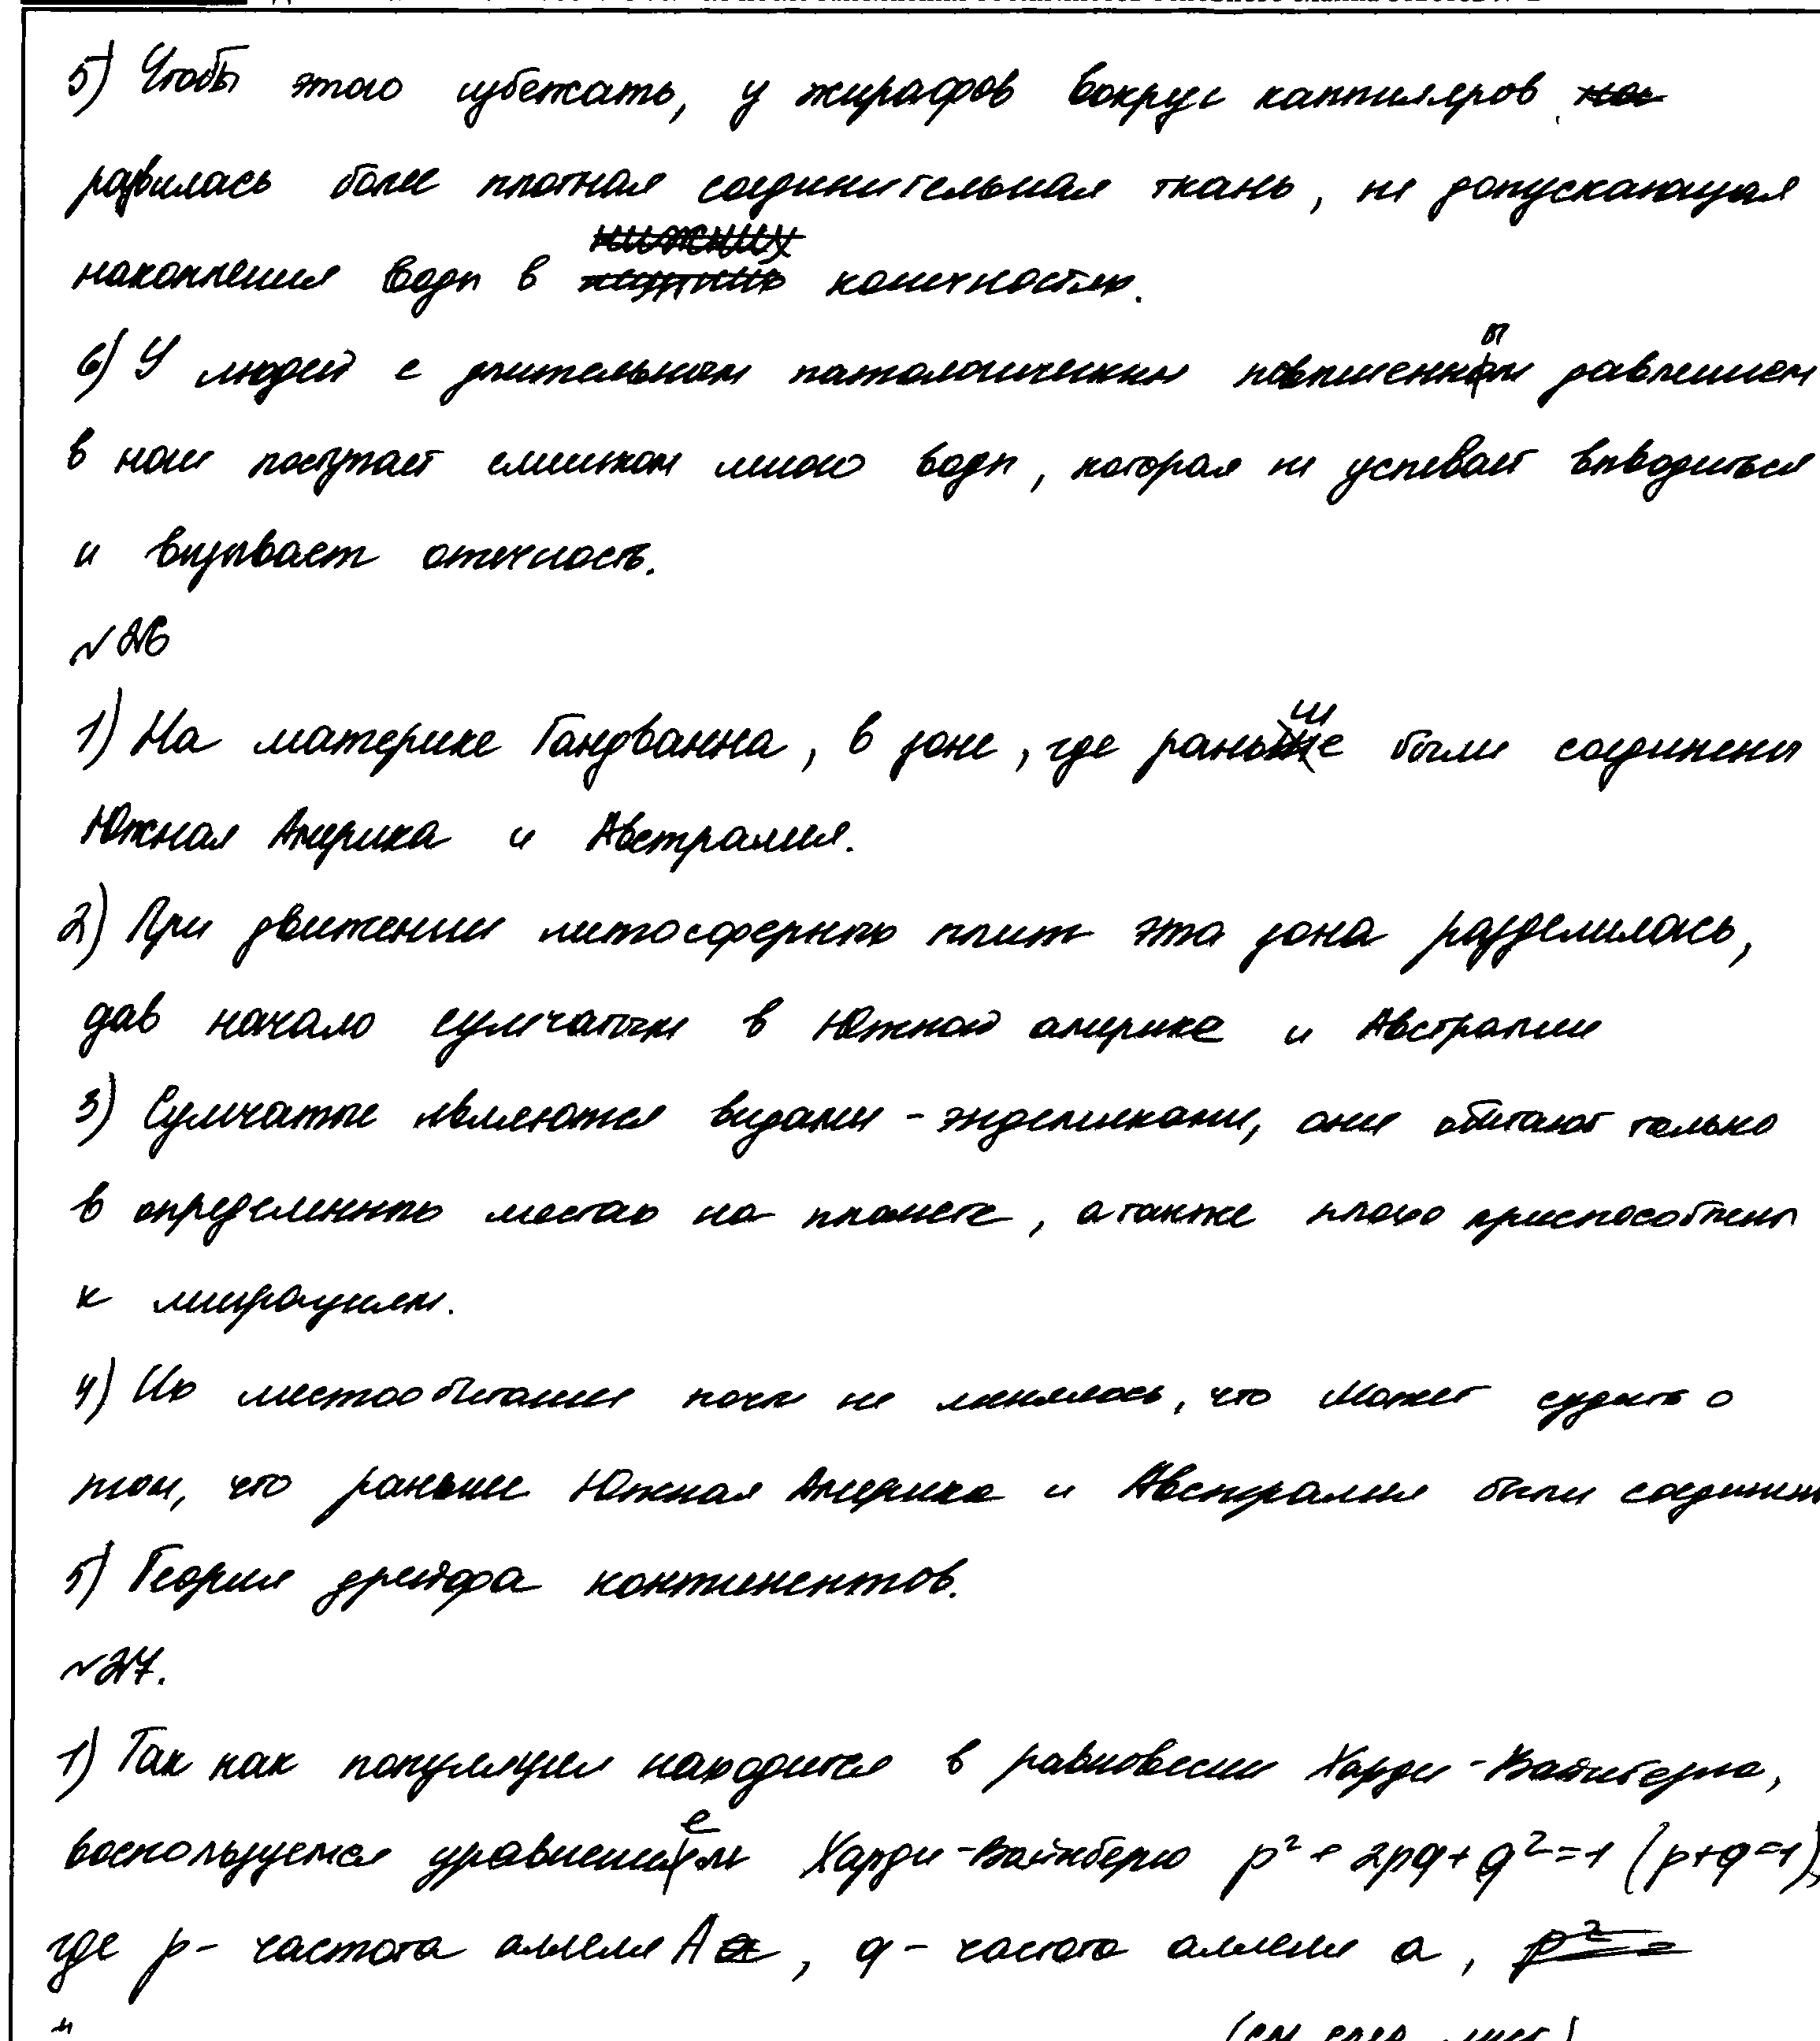 5) Чтобы этого избежать, у жирафов вокруг каппиляров на
развилась более плотная соединительная ткань, не допускающая
накопления воды в нижних конечностях.
6) У людей с длительным патологическим повышенным давлением
в ноги поступает слишком много воды, которая не успевает выводиться
и вызывает отечность.
№26
1) На материке Гандванна, в зоне, где раньше были соединены
Южная Америка и Австралия.
2) При движении литосферных плит эта зона разделилась,
дав начало сумчатым в Южной америке и Австралии
3) Сумчатые являются видами-эндемиками, они обитают только
в определенных местах на планете, а также плохо приспособлены
к миграциям.
4) Их местообитание почти не менялось, что может судить о
том, что раньше Южная Америка и Австралия были соединены
5) Теория дрейфа континентов.
№27.
1) Так как популяция находится в равновесии Харди-Вайнберга,
воспользуемся уравнением Харди-Вайнберга p² + 2pq + q² = 1 (p+q=1),
где p - частота аллеля A, q - частота аллеля a, p² =
(см. след. лист)